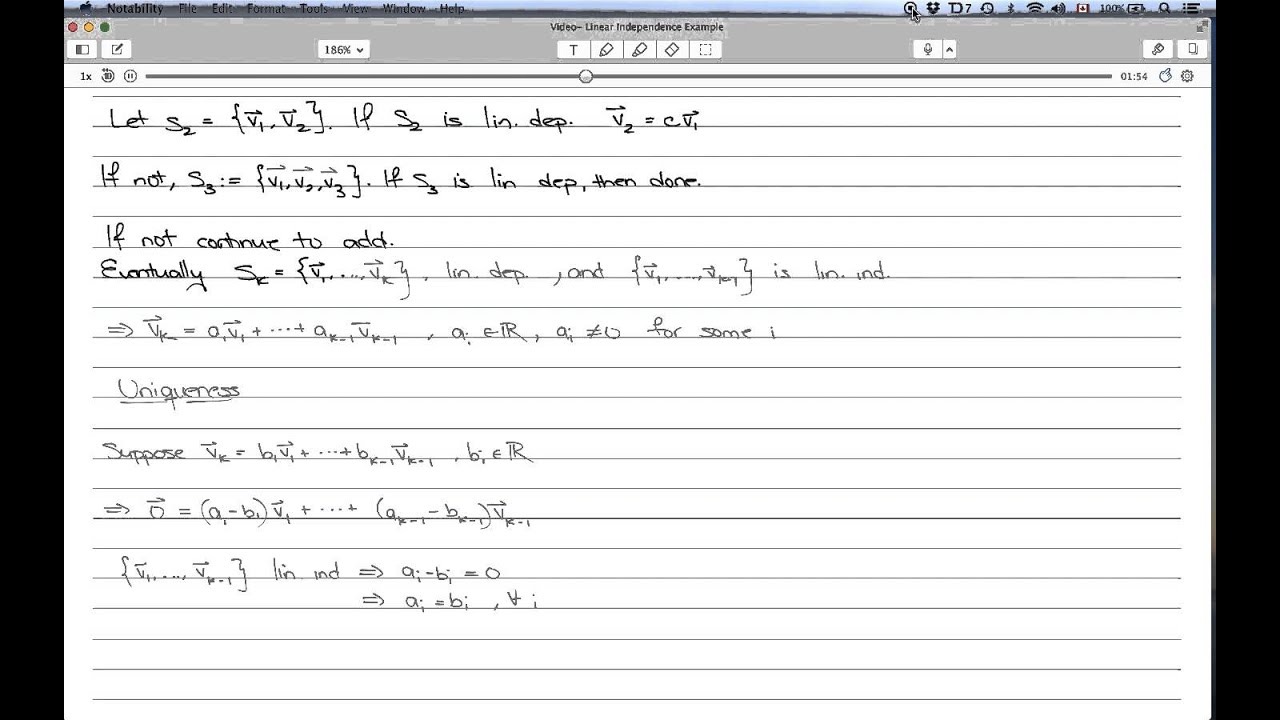 Notability File Edit Format Tools View Window Help 7 100%
Video– Linear Independence Example
186% T
1x 01:54
Let S₂ = {v⃗₁, v⃗₂}. If S₂ is lin. dep. v⃗₂ = cv⃗₁
If not, S₃ := {v⃗₁, v⃗₂, v⃗₃}. If S₃ is lin dep, then done.
If not continue to add.
Eventually Sₖ = {v⃗₁, ..., v⃗ₖ}, lin. dep. , and {v⃗₁, ..., v⃗ₖ₋₁} is lin. ind.
⇒ v⃗ₖ = a₁v⃗₁ + ··· + aₖ₋₁v⃗ₖ₋₁ , aᵢ ∈ ℝ, aᵢ ≠ 0 for some i
Uniqueness
Suppose v⃗ₖ = b₁v⃗₁ + ··· + bₖ₋₁v⃗ₖ₋₁ , bᵢ ∈ ℝ
⇒ 0⃗ = (a₁ - b₁)v⃗₁ + ··· + (aₖ₋₁ - bₖ₋₁)v⃗ₖ₋₁
{v⃗₁, ..., v⃗ₖ₋₁} lin. ind ⇒ aᵢ - bᵢ = 0
⇒ aᵢ = bᵢ , ∀ i